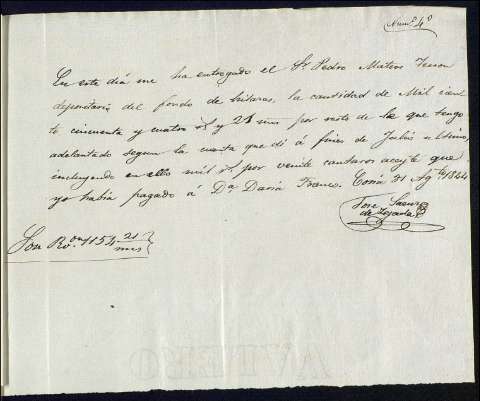 Num.º 4º
En este dia me ha entregado el Sr. Pedro Mateos
depositario del fondo de la cantidad de Mil cien
to cincuenta y cuatro rs y 21 mrs por resto de lo que tengo
adelantado segun la cuenta que di á fines de Julio ultimo,
incluyendo en ellos mil rs. por veinte cantaros aceyte que
yo habia pagado á Da. Daria Franco. Coria 31 Agto 1844
Jose Saenz
de Tejada
Son Rs. on 1154 21
mrs